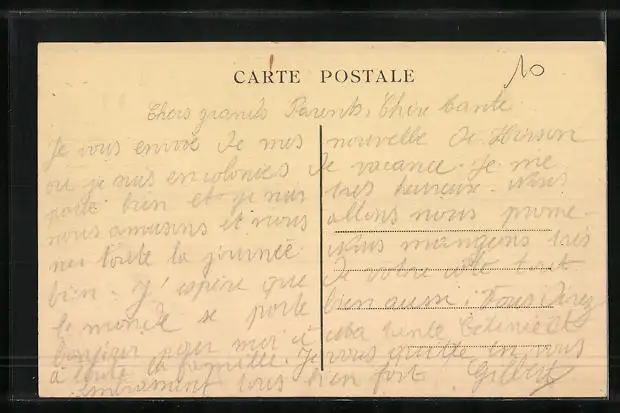 CARTE POSTALE
10
Chers grands Parents, Chère tante
Je vous envoie de mes nouvelle de Hirson
ou je suis en colonies de vacance. Je me
porte bien et je suis très heureux. Nous
nous amusons et nous allons nous prome-
ner toute la journée. Nous mangeons très
bien. J'espère que de votre côté tout
le monde se porte bien aussi. Vous direz
bonjour pour moi à tante et
à toute la famille. Je vous quitte en vous
embrassant tous bien fort. Gilbert